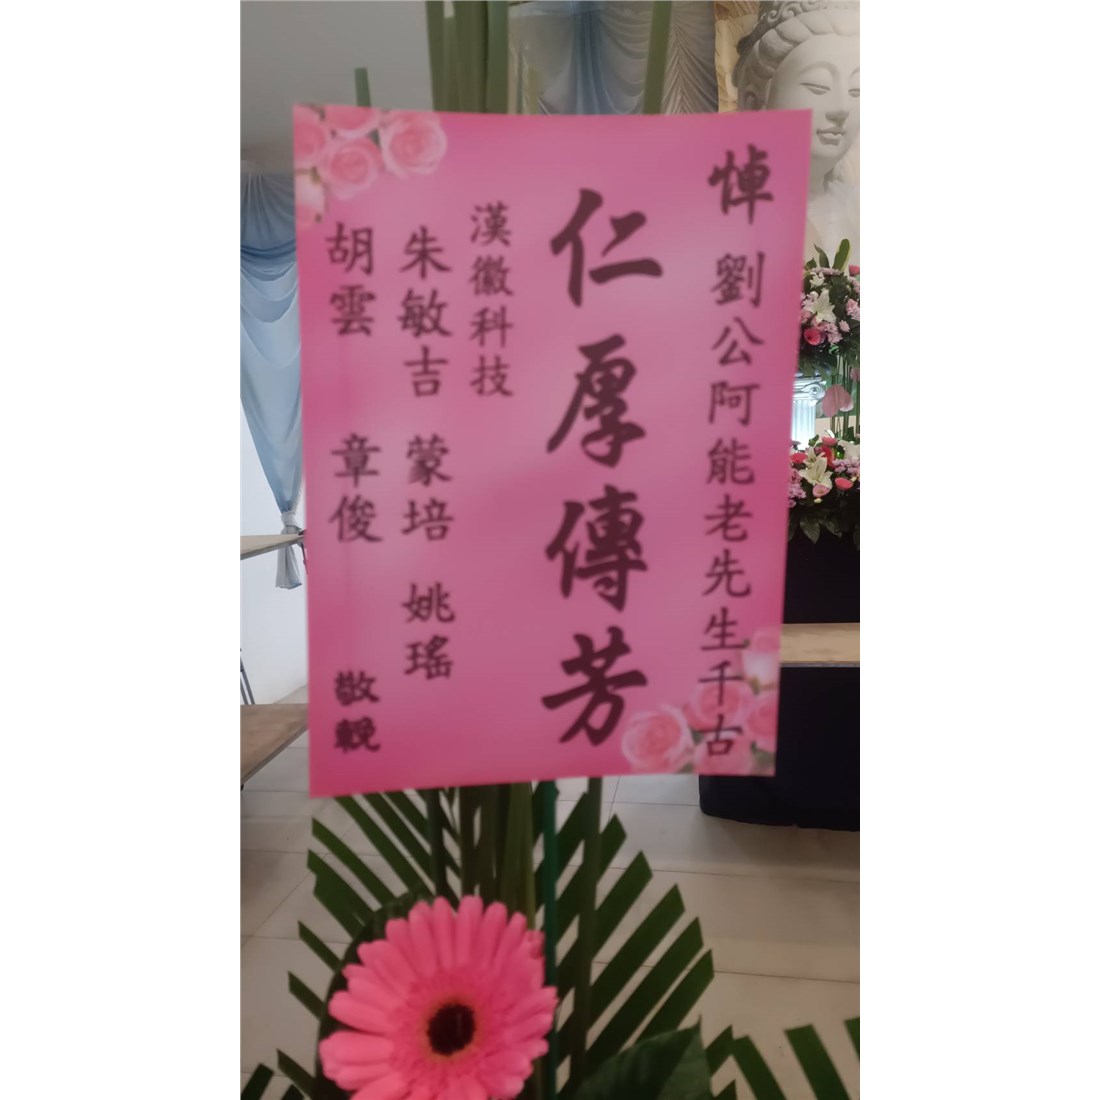 悼 劉公阿能老先生千古
仁厚傳芳
漢徽科技
朱敏吉 蒙培 姚瑤
胡雲 章俊 敬輓